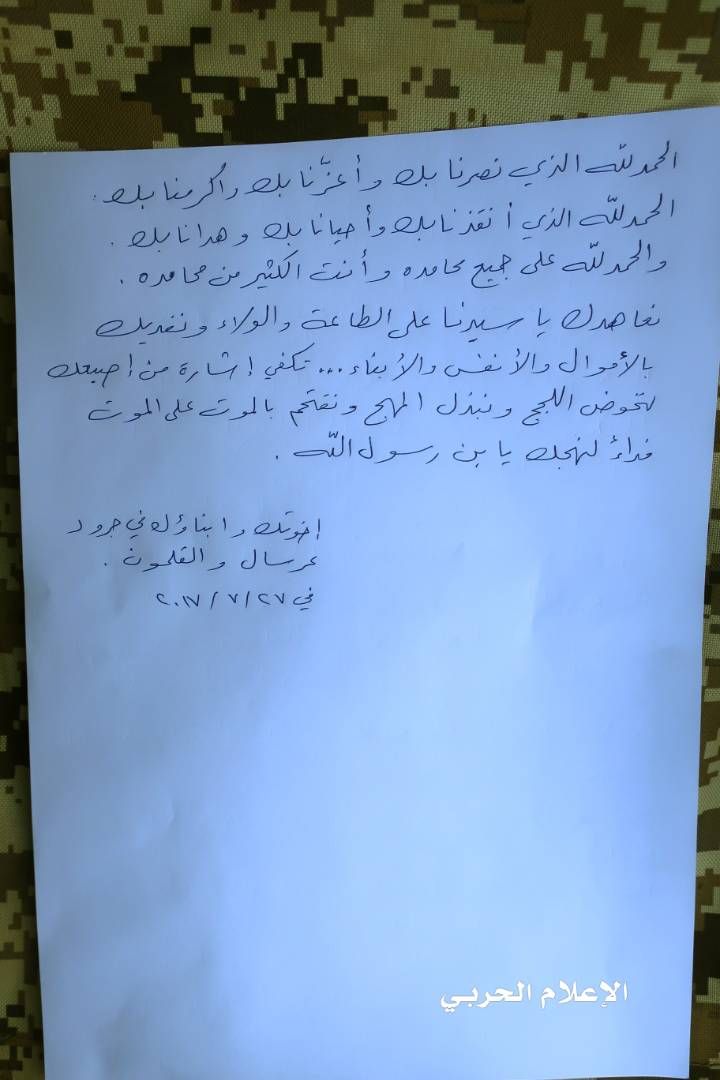 الحمدلله الذي نصرنا بك وأعزّنا بك وأكرمنا بك.
الحمدلله الذي أنقذنا بك وأحيانا بك وهدانا بك.
والحمدلله على جميع محامده وأنت الكثير من محامده.
نعاهدك يا سيدنا على الطاعة والولاء ونفديك
بالأموال والأنفس والأبناء... تكفي إشارة من إصبعك
لنخوض اللجج ونبذل المهج ونقتحم بالموت على الموت
فداءً لنهجك يا بن رسول الله.
إخوتك وابناؤك في جرود
عرسال والقلمون.
في ٢٧/٧/٢٠١٧
الإعلام الحربي